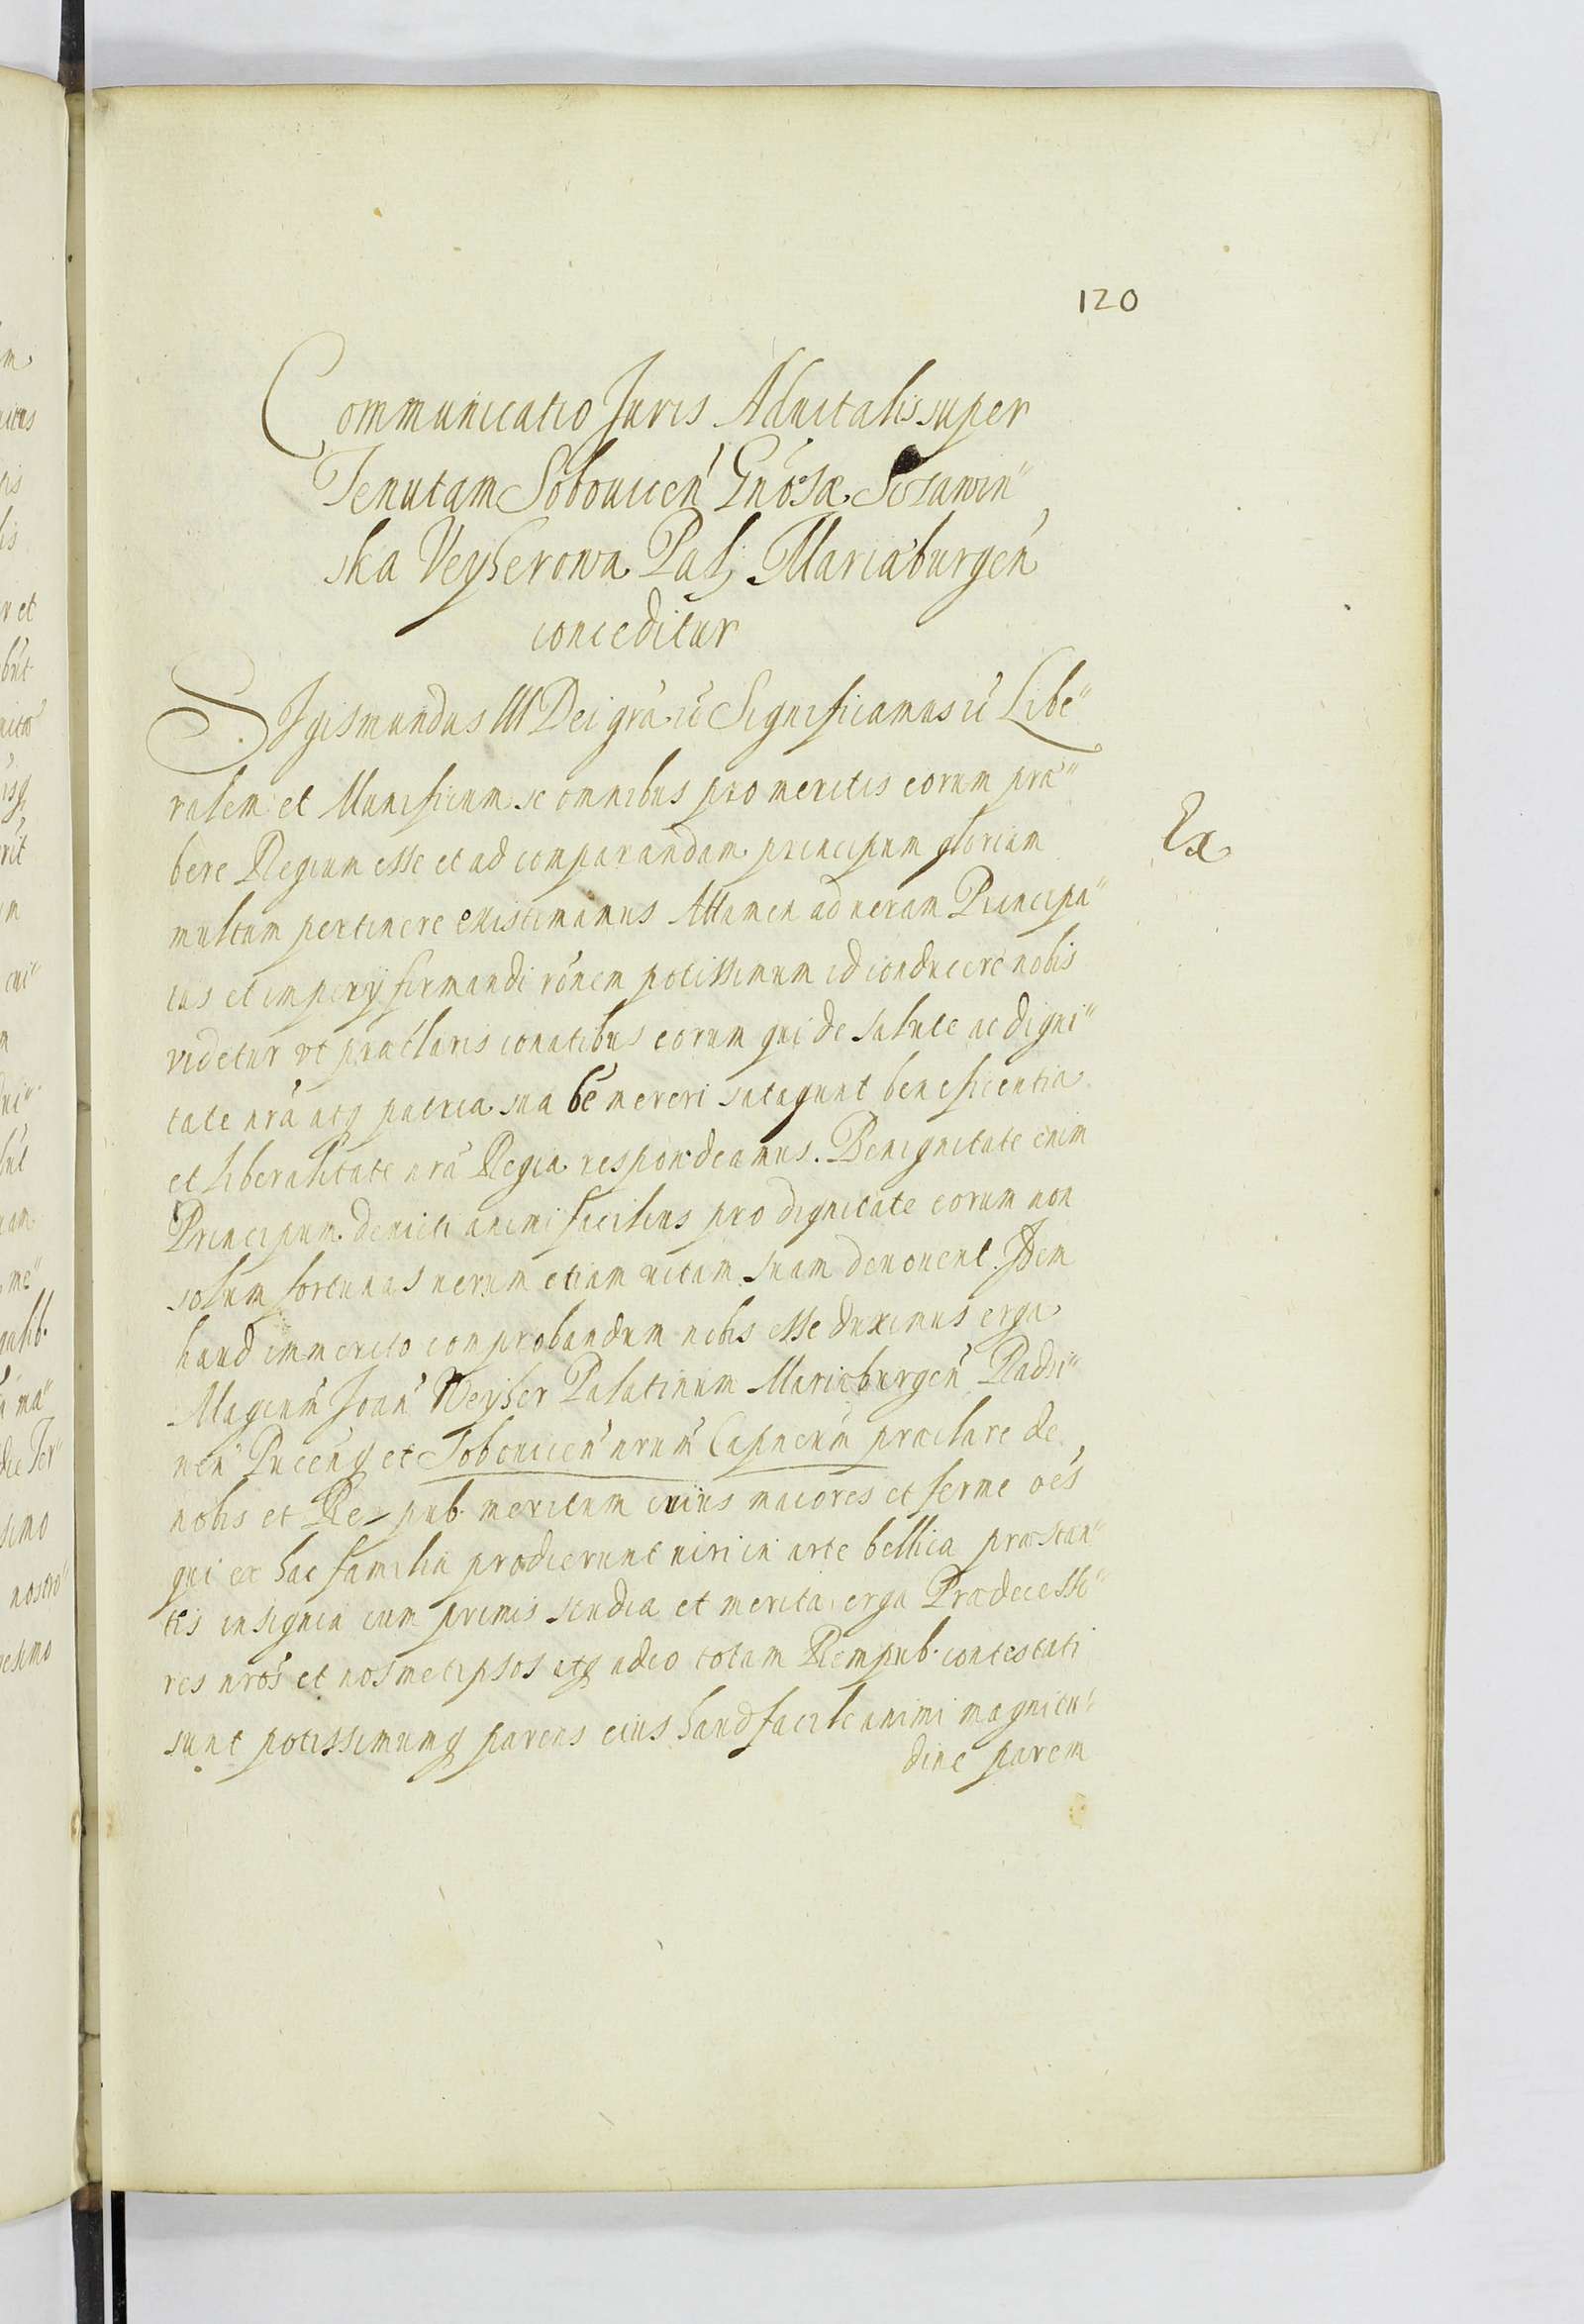 120
Communicatio Juris Aduitalis super
Tenutam Sobouicen̄ Gn̄osæ Sczawin"
ska Veyherowa Pal: Mariæburgen̄
conceditur
SJgismundus III Dei gr̄a ic̄ Significamus ic̄ Libe"
ralem et Munificum se omnibus pro meritis eorum præ"
bere Regium esse et ad comparandam principum gloriam
multum pertinere existimamus Attamen ad ueram Principa"
tus et imperij firmandi rōnem potissimum id conducere nobis
videtur vt præclaris conatibus eorum qui de salute ac digni"
tate nr̄a atq patria sua bē mereri satagunt beneficentia
et liberalitate nr̄a Regia respondeamus. Benignitate enim
Principum deuicti animi facilius pro dignitate eorum non
solum fortunas uerum etiam uitam suam deuouent. Idem
haud immerito comprobandum nobis esse duximus erga
Magcum̄ Joan̄ Veyher Palatinum Mariæburgen̄ Radzi"
nen̄ Pucen̄q et Sobouicen̄ nrum̄ Capneum̄ præclare de
nobis et Re-pub. meritum cuius maiores et ferme oēs
qui ex hac familia prodierunt uiri in arte bellica præstan"
tes insignia cum primis studia et merita erga Prædecesso"
res nr̄os et nosmetipsos atq adeo totam Rempub. contestati
sunt potissimumq parens eius haud facile animi magnitu"
dine parem
Ex